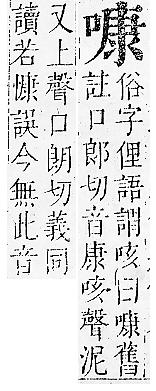 俗字俚語謂咳曰舊
註口郎切音康咳聲泥
又上聲口朗切義同
讀若慷誤今無此音